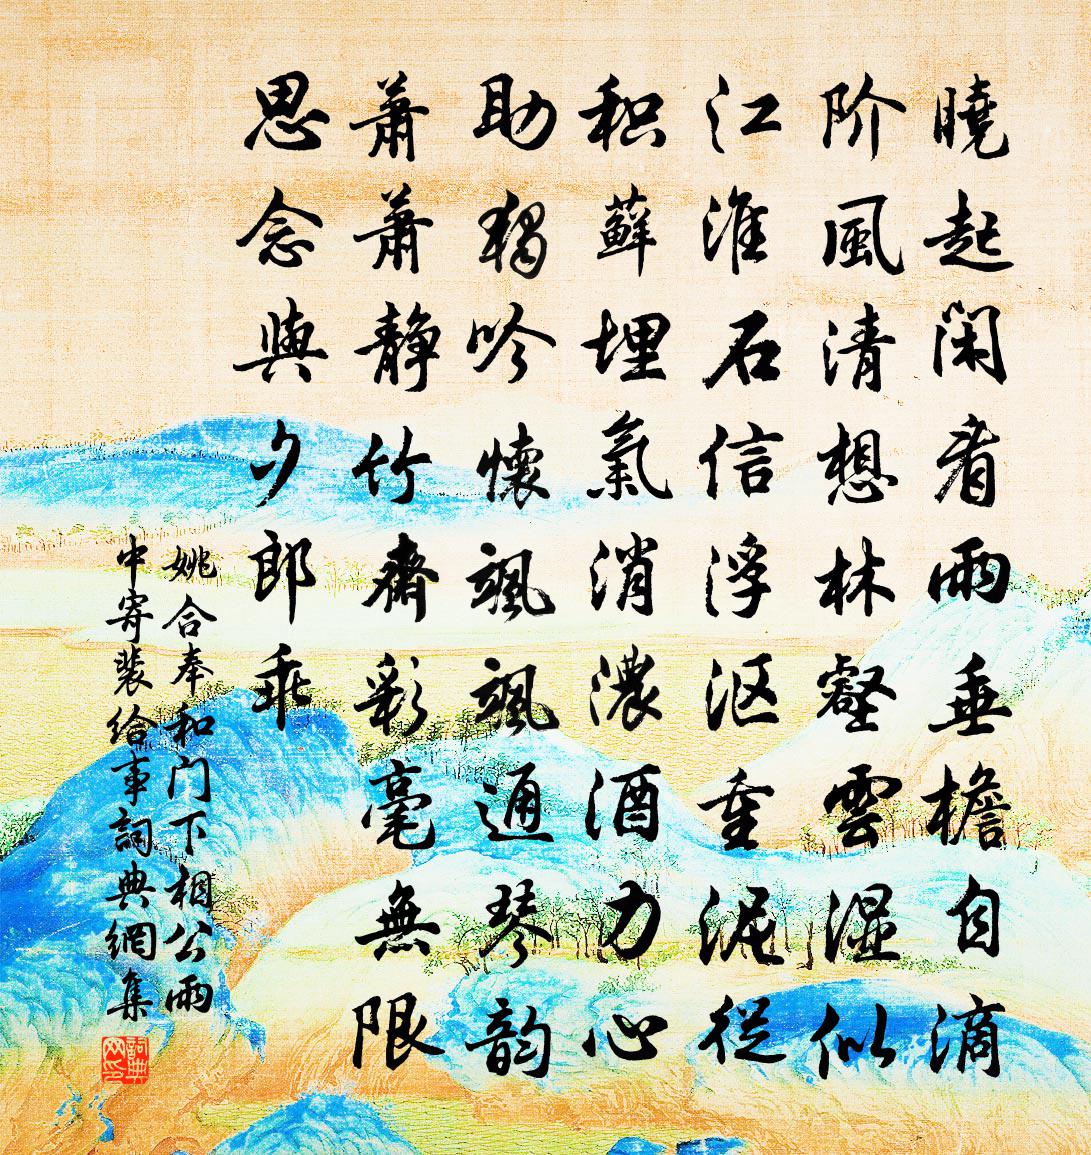 曉起閑看雨垂檐自滴
阶風清想林壑雲湿似
江淮石信浮沤重泥從
积蘚埋氣消濃酒力心
助獨吟懷颯颯通琴韵
蕭蕭靜竹齋彩毫無限
思念與夕郎乖
姚合奉和门下相公雨
中寄裴给事詞典網集